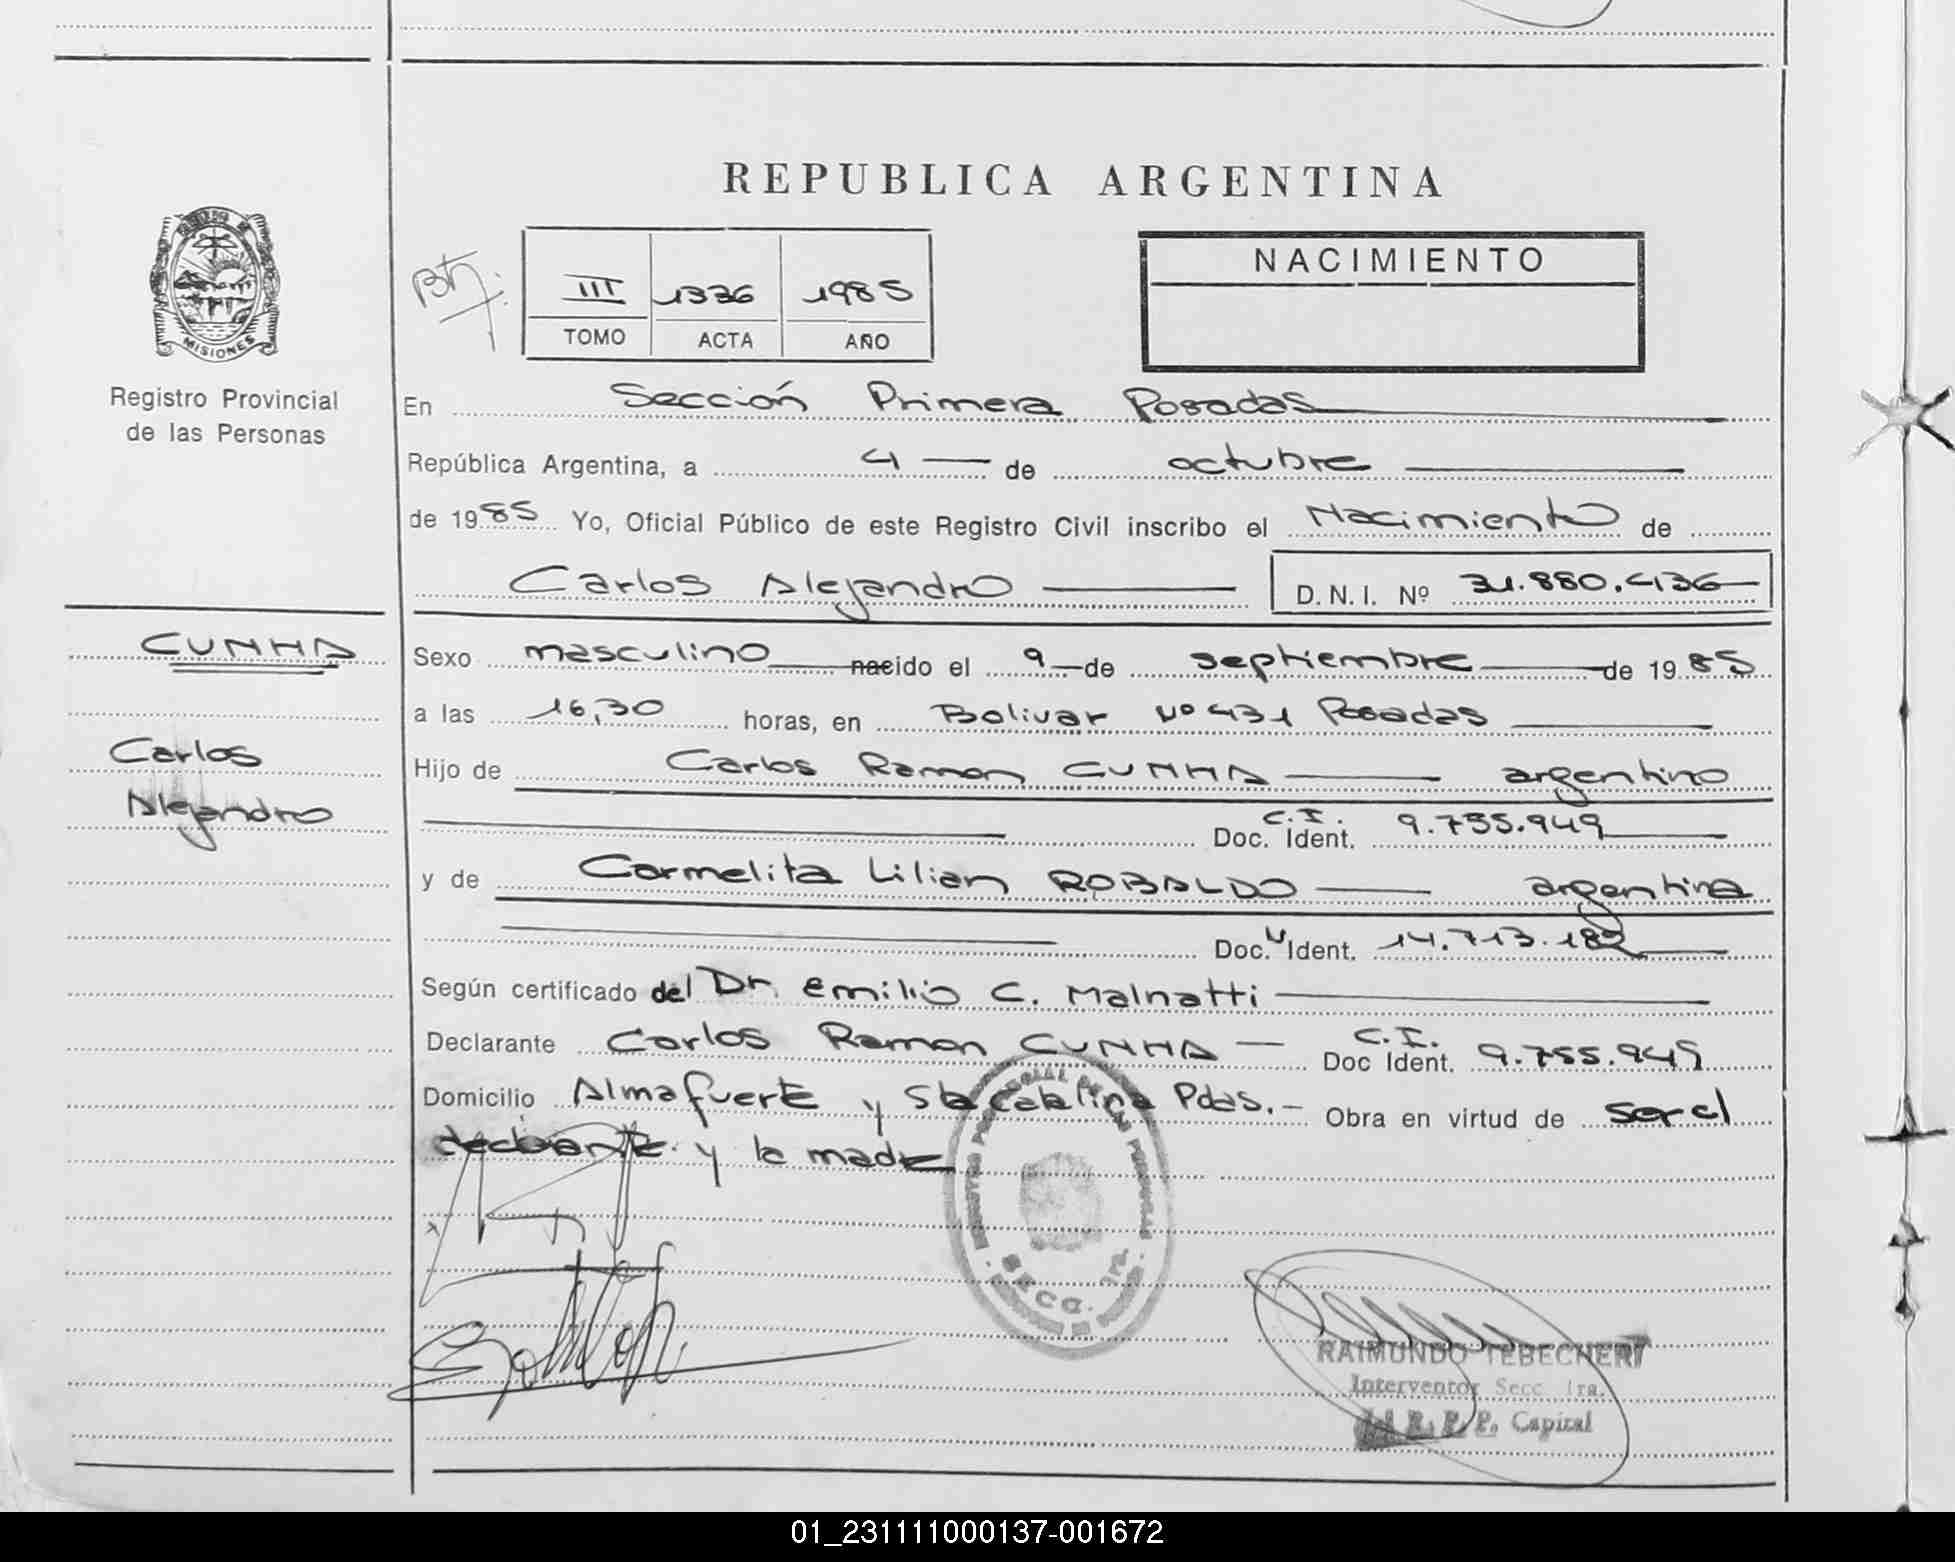 REPUBLICA ARGENTINA
NACIMIENTO
III 1336 1985
TOMO ACTA AÑO
MISIONES
Registro Provincial
de las Personas
En Sección Primera Posadas
República Argentina, a 4 de octubre
de 1985 Yo, Oficial Público de este Registro Civil inscribo el Nacimiento de
Carlos Alejandro D.N.I. Nº 31.880.436
CUNHA
Carlos
Alejandro
Sexo masculino nacido el 9 de septiembre de 1985
a las 16,30 horas, en Bolivar Nº 431 Posadas
Hijo de Carlos Ramon CUNHA argentino
C.I.
Doc. Ident. 9.755.949
y de Carmelita Lilian ROBALDO argentina
Doc. U Ident. 14.713.182
Según certificado del Dr. Emilio C. Malnatti
Declarante Carlos Ramon CUNHA C.I. Doc Ident. 9.755.949
Domicilio Almafuerte y Sta Catalina Pdas.- Obra en virtud de ser el
declarante y la madre
SECC. 1ra.
RAIMUNDO TEBECHERI
Interventor Secc. 1ra.
R. P. P. Capital
01_231111000137-001672